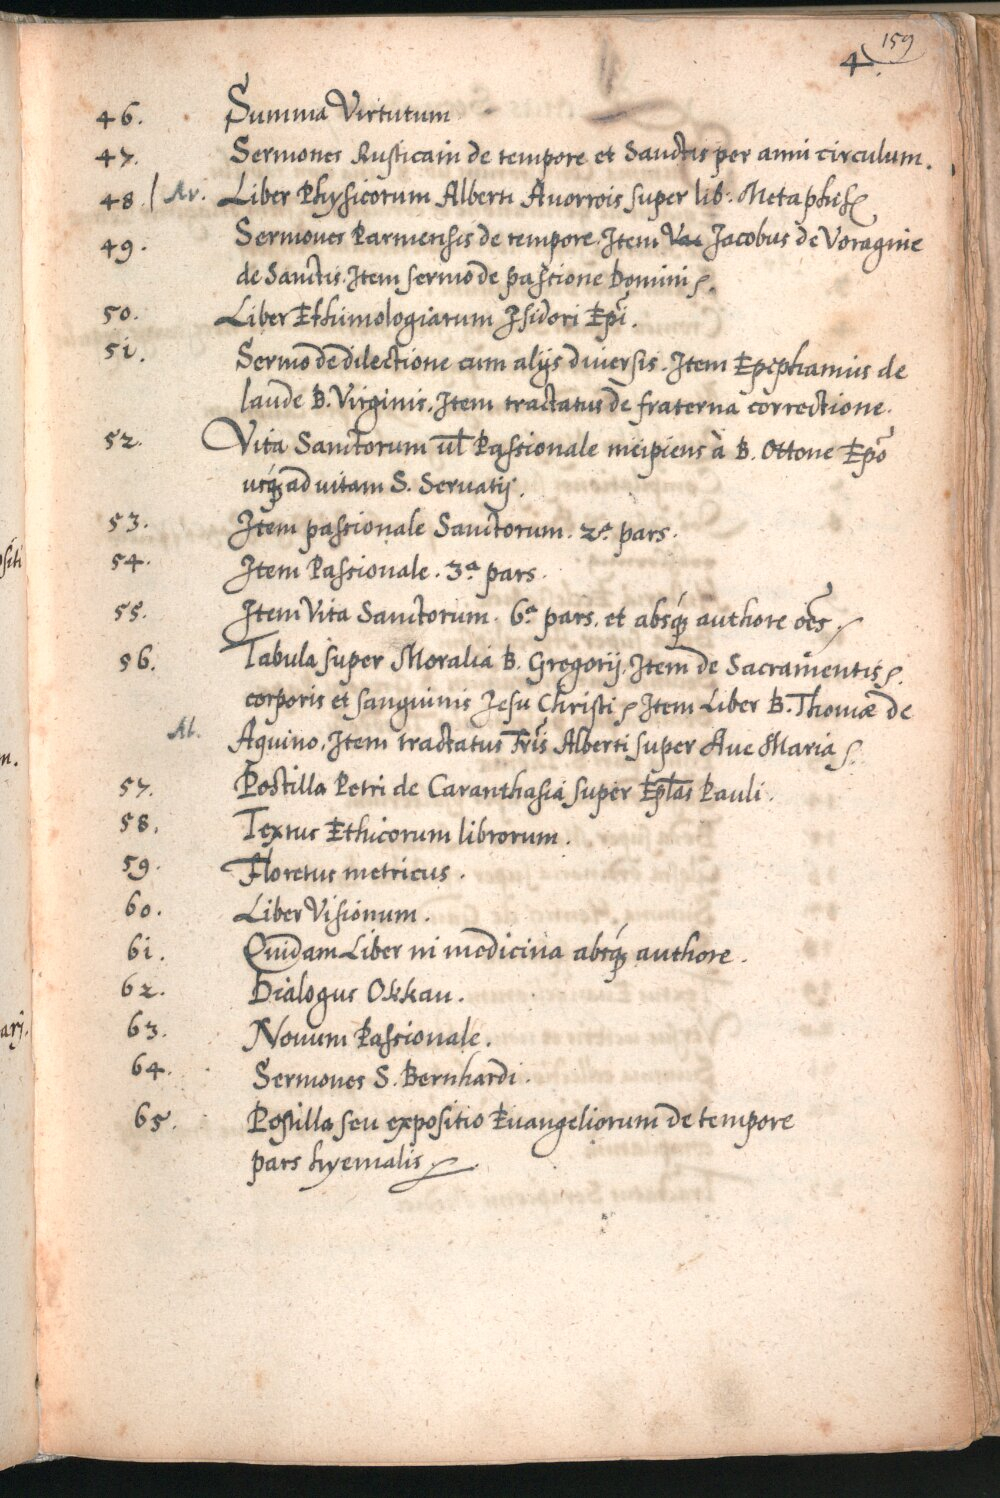 159
4.
46. Summa Virtutum
47. Sermones Rusticani de tempore et Sanctis per anni circulum.
48 Av. Liber Physicorum Alberti Auorrois super lib: Metaphis
49. Sermones Parmensis de tempore. Item Jacobus de Voragine
de Sanctis. Item sermo de passione Domini
50. Liber Ethimologiarum Isidori Epi.
51. Sermo de dilectione cum alijs diversis. Item Epiphanius de
laude B. Virginis. Item tractatus de fraterna correctione.
52. Vita Sanctorum ul Passionale incipiens à B. Ottone Epo
usq; ad vitam S. Servatij.
53. Item passionale Sanctorum. 2a pars.
54. Item Passionale. 3a pars.
55. Item Vita Sanctorum. 6a pars. et absq; authore oes
56. Tabula super Moralia B. Gregorij. Item de Sacramentis
corporis et sanguinis Jesu Christi Item Liber B. Thomæ de
Al. Aquino. Item tractatus Fris Alberti super Aue Maria
57. Postilla Petri de Caranthasia super Eplas Pauli.
58. Textus Ethicorum librorum.
59. Floretus metricus.
60. Liber Visionum.
61. Quidam Liber in medicina absq; authore.
62. Dialogus Okkan.
63. Nouum Passionale.
64. Sermones S. Bernhardi.
65. Postilla seu expositio Euangeliorum de tempore
pars hyemalis